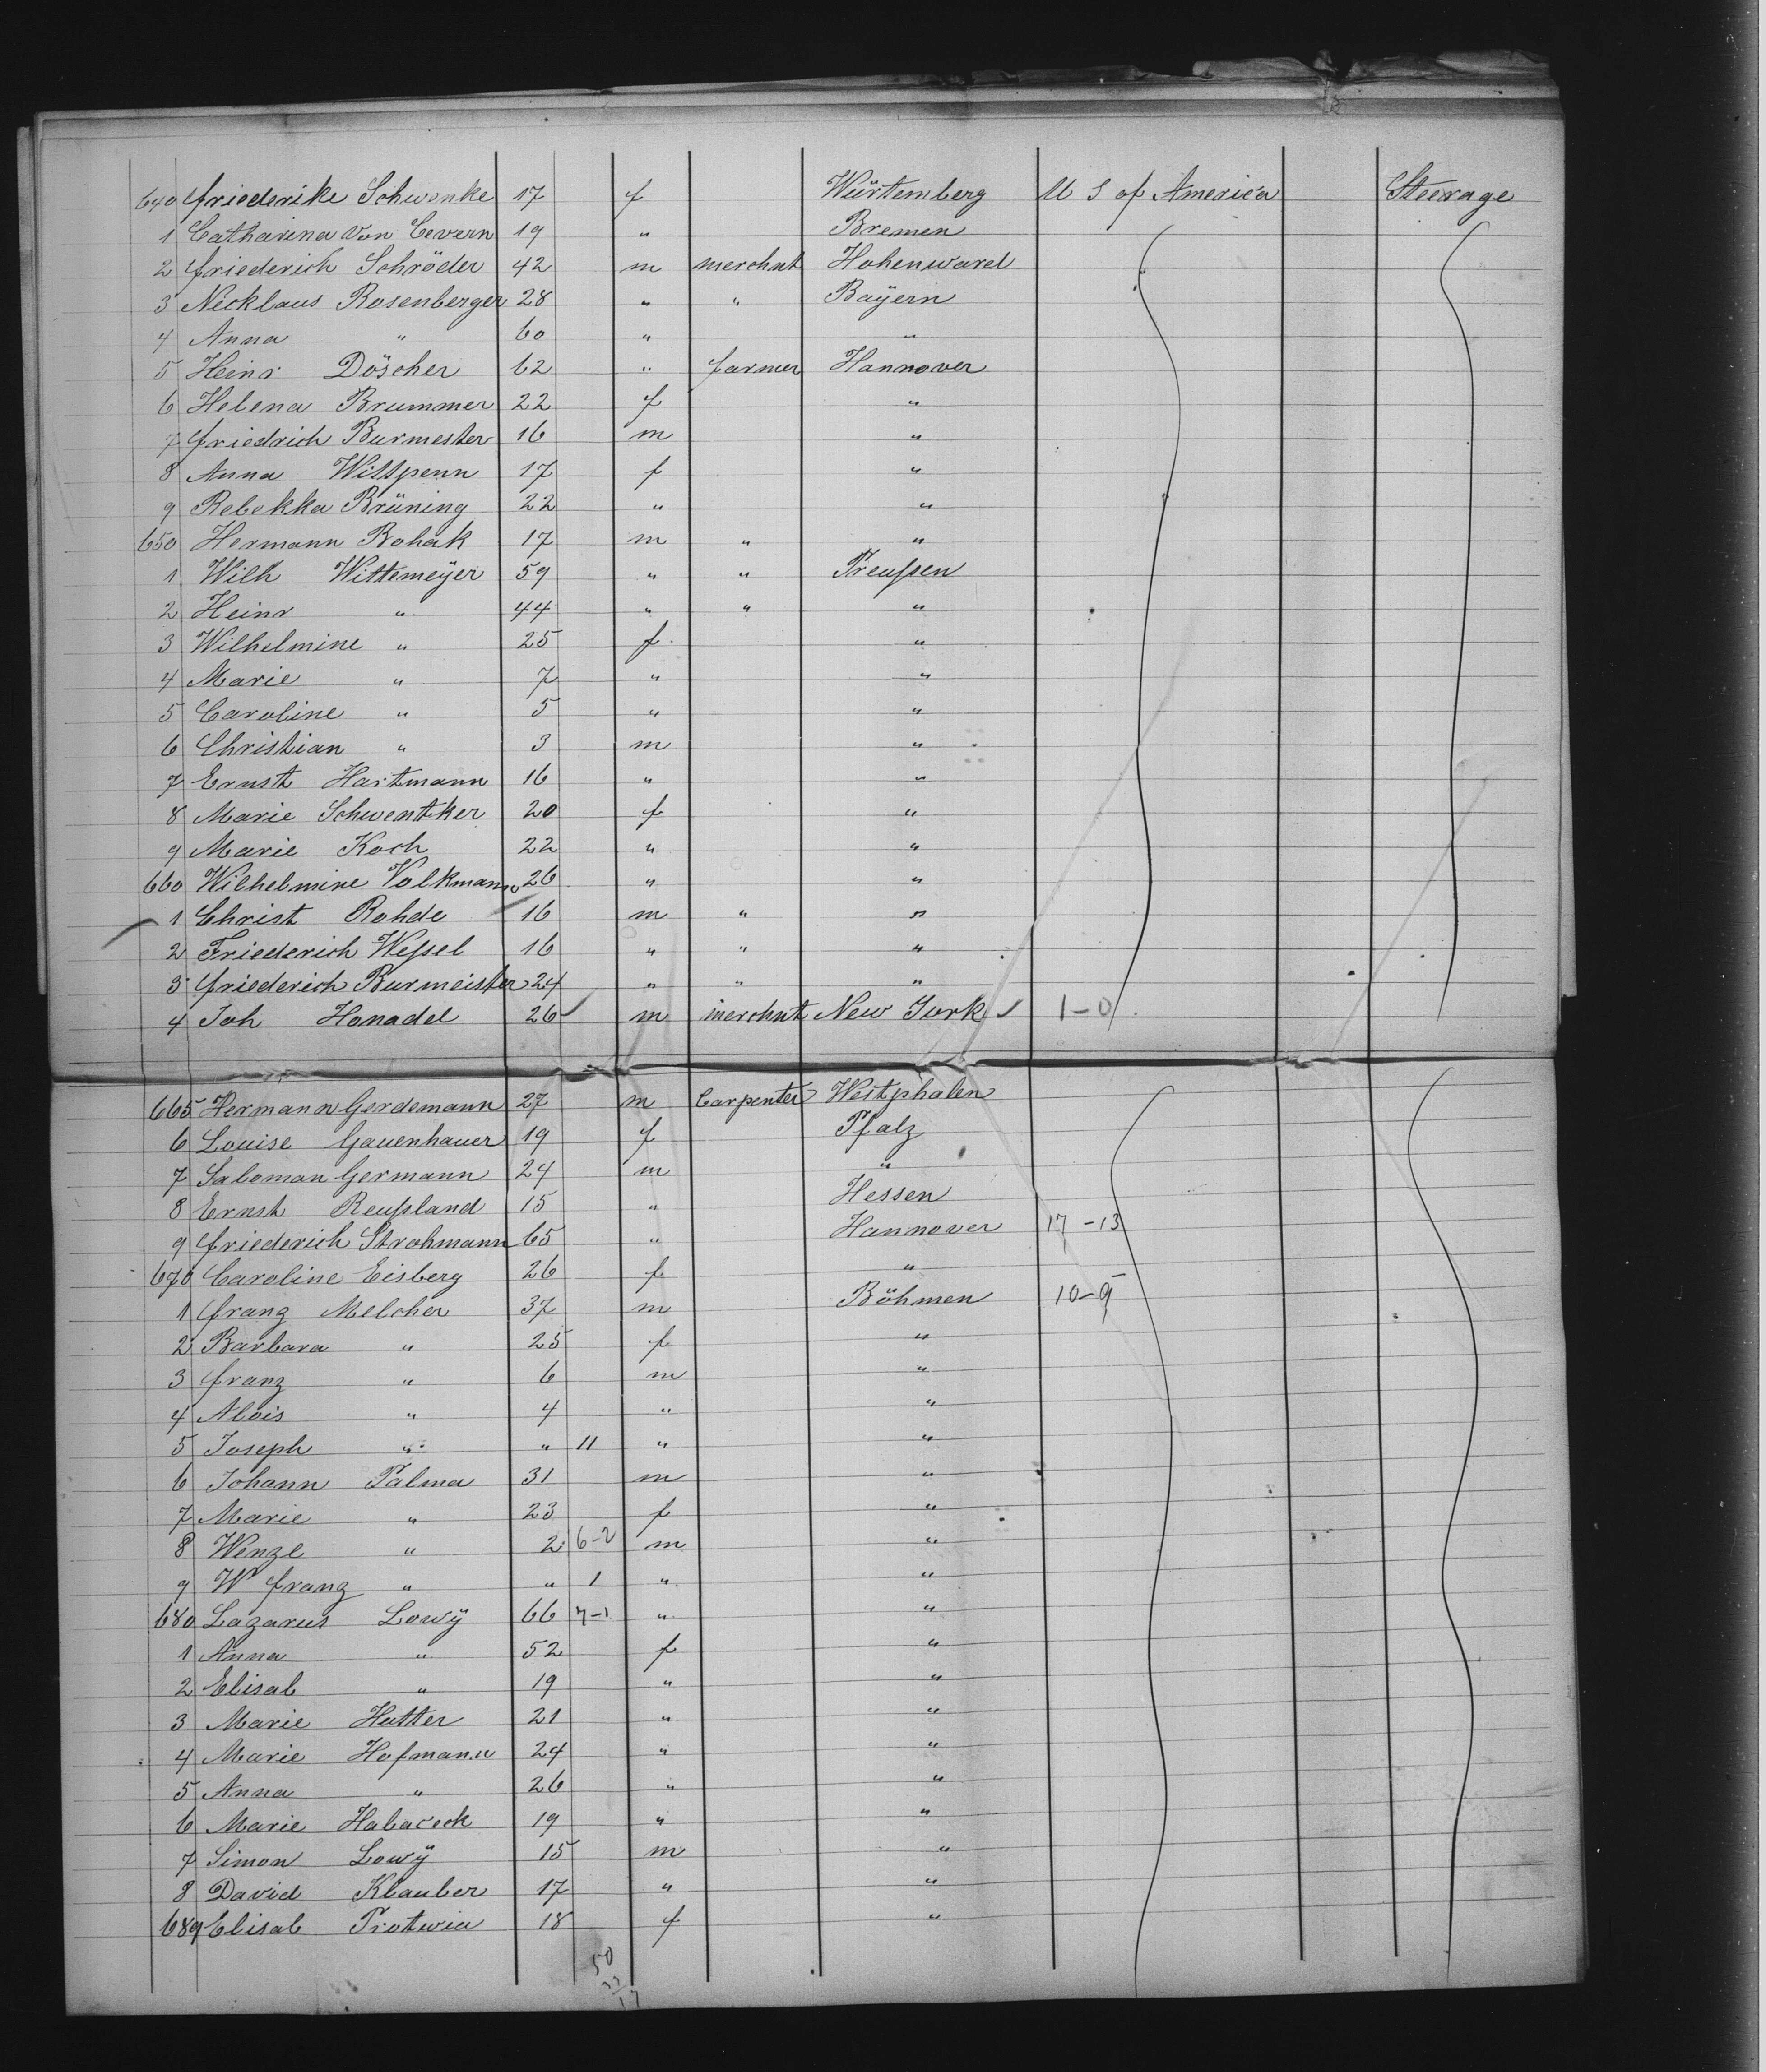 640 Friederike Schwenke 17 f Würtemberg U S of America Steerage
1 Catharina von Bevern 19 " Bremen
2 Friederich Schröder 42 m merchnt Hohenward
3 Nicklaus Rosenberger 28 " " Bayern
4 Anna " 60 " "
5 Heinr Döscher 62 " farmer Hannover
6 Helena Brummer 22 f "
7 Friedrich Burmester 16 m "
8 Anna Wittpenn 17 f "
9 Rebekka Brüning 22 " "
650 Hermann Bohak 17 m " "
1 Wilh Wittemeÿer 59 " " Preußen
2 Heinr " 44 " " "
3 Wilhelmine " 25 f "
4 Marie " 7 " "
5 Caroline " 5 " "
6 Christian " 3 m "
7 Ernst Hartmann 16 " "
8 Marie Schwentker 20 f "
9 Marie Koch 22 " "
660 Wilhelmine Volkmann 26 " "
1 Christ Rohde 16 m " "
2 Friederich Weßel 16 " " "
3 Friederich Burmeister 24 " " "
4 Joh Honadel 26 m merchnt New York 1-0
665 Hermann Gerdemann 27 m Carpenter Westphalen
6 Louise Gauenhauer 19 f Pfalz
7 Saloman Germann 24 m "
8 Ernst Reußland 15 " Hessen
9 Friederich Strohmann 65 " Hannover 17-13
670 Caroline Eisberg 26 f "
1 Franz Melcher 37 m Böhmen 10-9
2 Barbara " 25 f "
3 Franz " 6 m "
4 Alois " 4 " "
5 Joseph " " 11 " "
6 Johann Palma 31 m "
7 Marie " 23 f "
8 Wenzl " 2 6-2 m "
9 W Franz " " 1 " "
680 Lazarus Lowÿ 66 7-1 " "
1 Anna " 52 f "
2 Elisab " 19 " "
3 Marie Hutter 21 " "
4 Marie Hofmann 24 " "
5 Anna " 26 " "
6 Marie Habaceck 19 " "
7 Simon Lowÿ 15 m "
8 David Klauber 17 " "
689 Elisab Protwia 18 f "
50
33
17